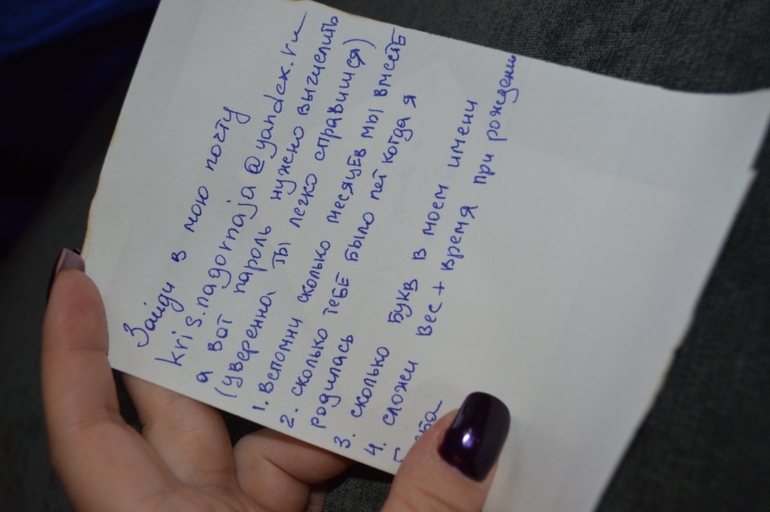 Зайди в мою почту
kris.nagornaja@yandex.ru
а вот пароль нужно вычислить
(уверенна ты легко справишся)
1. вспомни сколько месяцев мы вместе
2. сколько тебе было лет когда я
родилась
3. сколько букв в моем имени
4. сложи вес + время при рождении